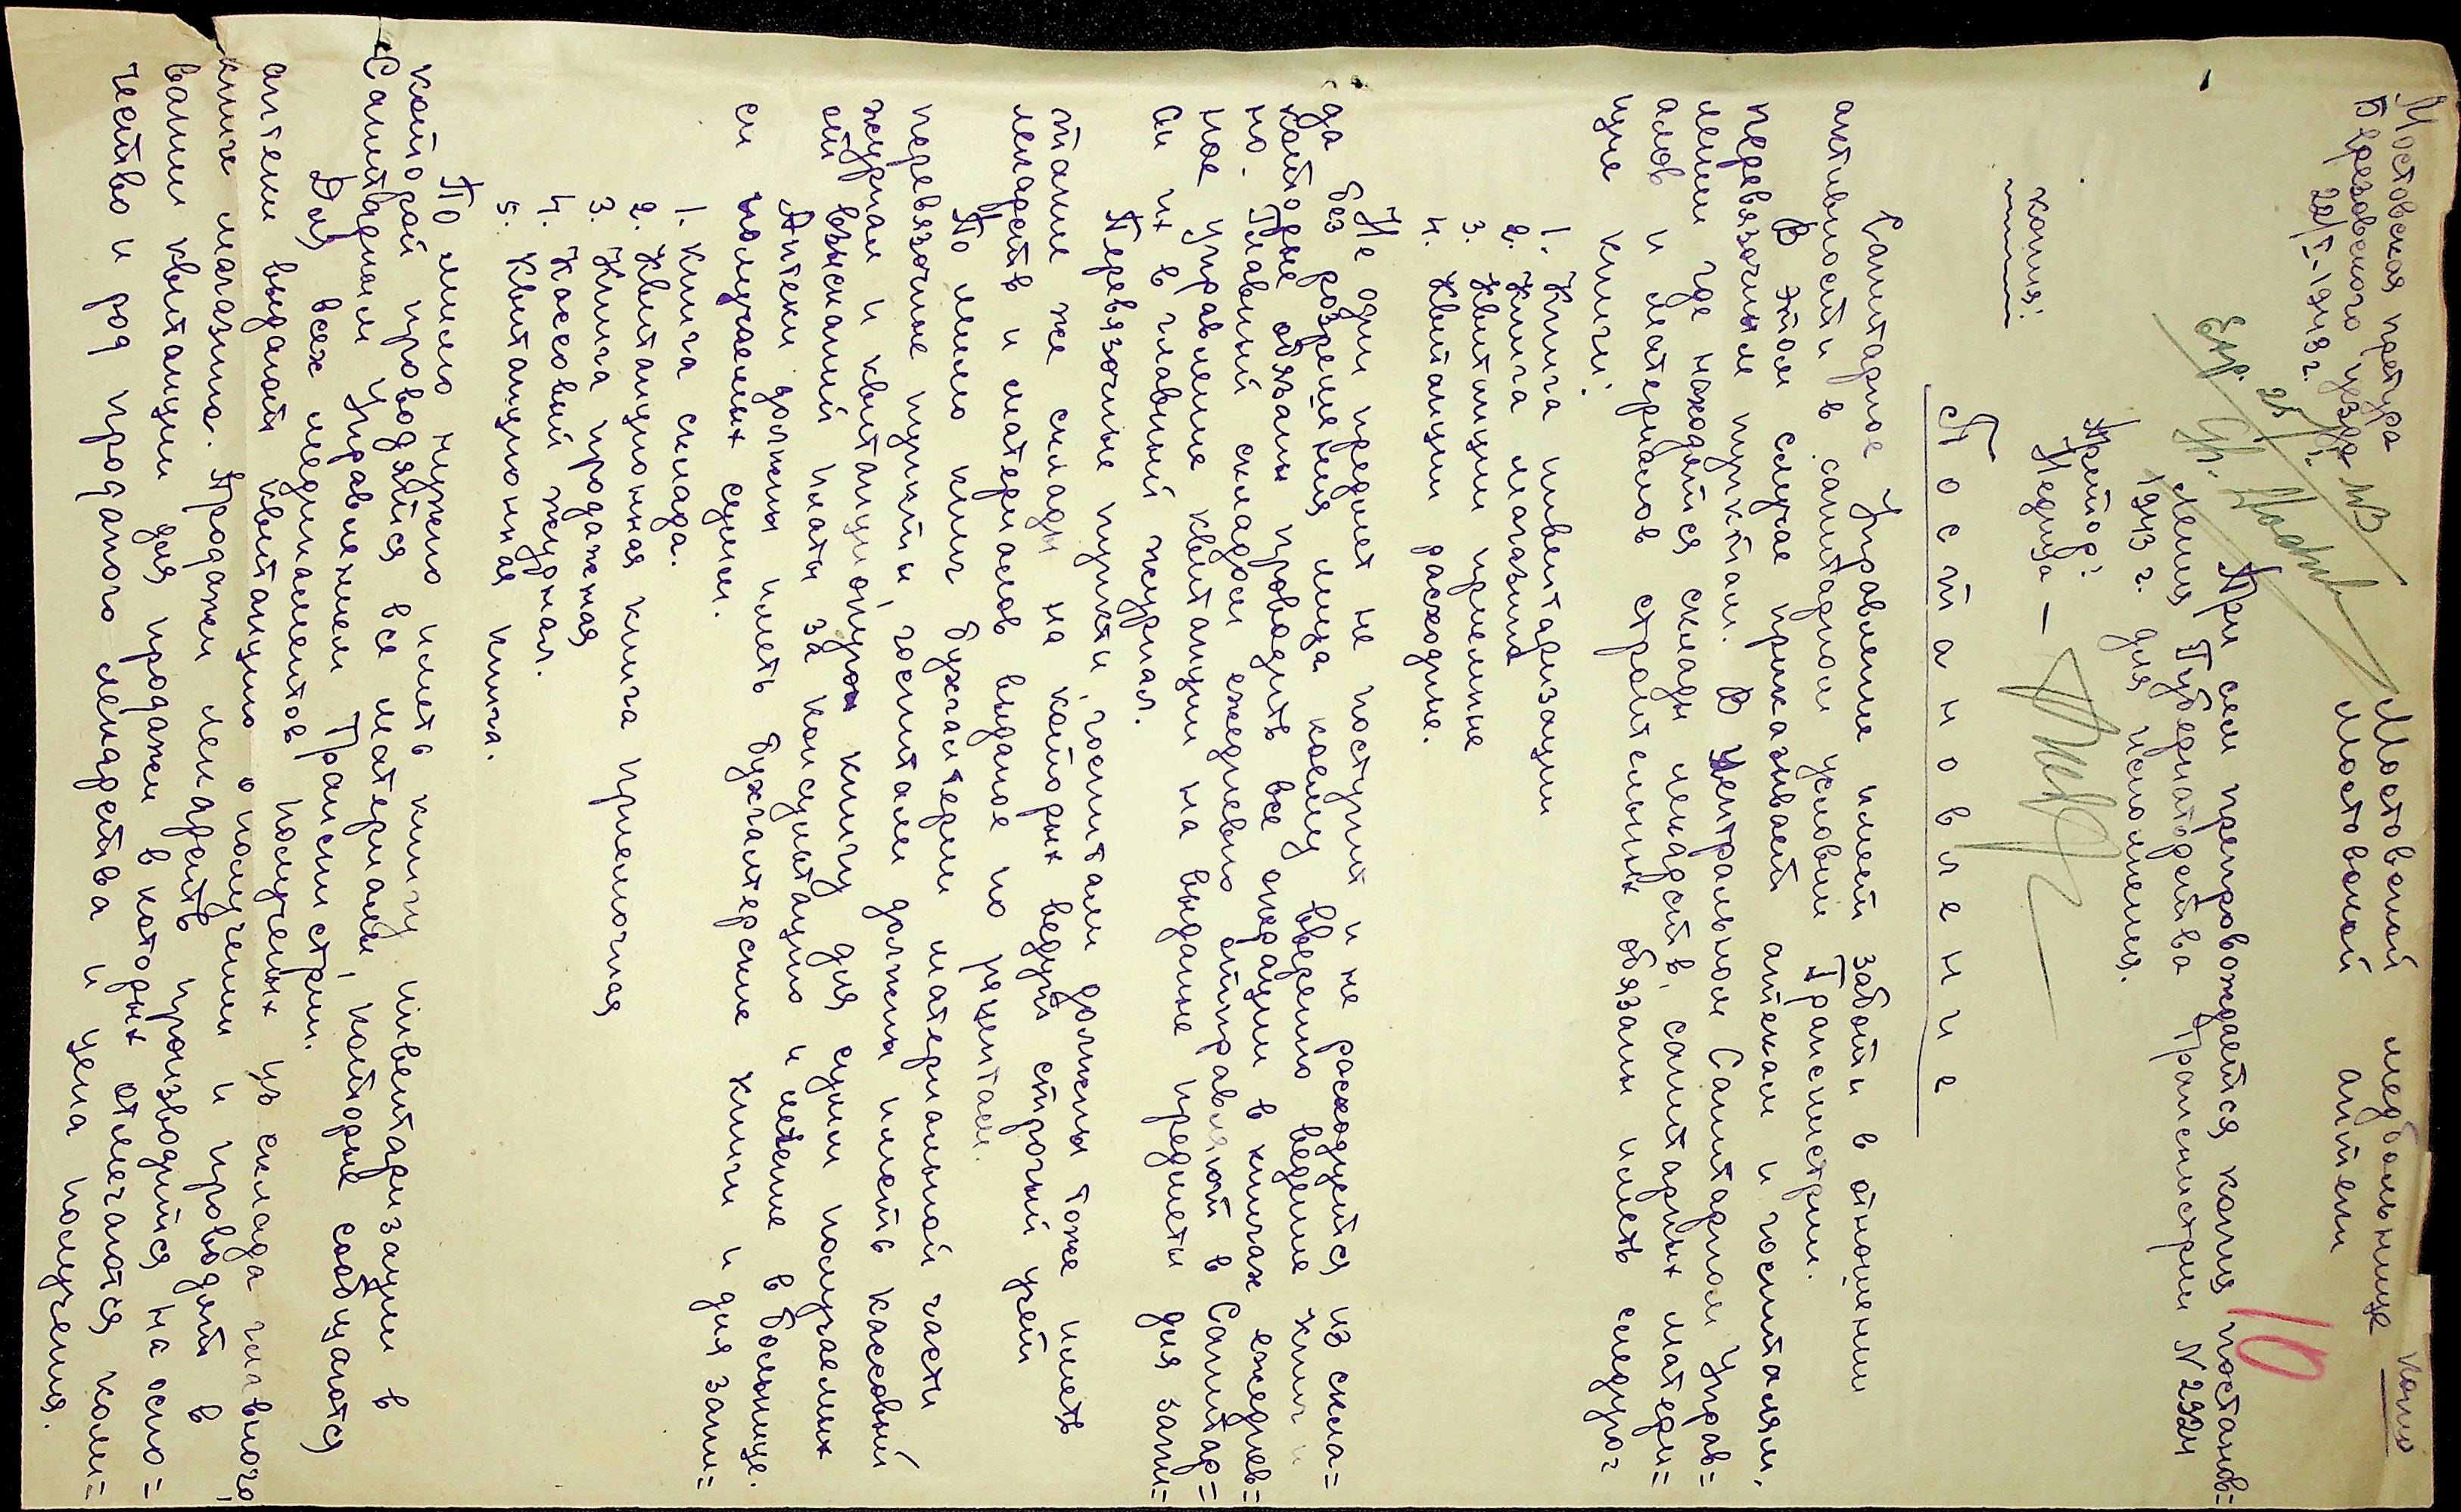 Мостовская претура
Березовского уезда
22/I-1943 г.
Копию
Мостовской медбольнице
Мостовской аптеки
10
При сем препровождается копия постанов=
ления Губернаторства Транснистрии N 2324
1943 г. для исполнения.
Претор:
Недица —
копия:
Постановление
Санитарное Управление имеет заботи в отношении
активности в санитарном условии Транснистрии.
В этом случае приказывает аптекам и госпиталям,
перевязочным пунктам. В Центральном Санитарном Управ=
лении где находятся склады лекарств, санитарных матери=
алов и материалов строительных обязаны иметь следую=
щие книги:
1. Книга инвентаризации
2. Книга магазина
3. Квитанции приемные
4. Квитанции расходные.
Не один предмет не поступит и не расходуется из скла=
да без розрешения лица коему вверенно ведение книг и
которые обязаны проводить все операции в книгах ежеднев=
но. Главный складом ежедневно отправляют в Санитар=
ное управление квитанции на выданые предметы для запи=
си их в главный журнал.
Перевязочные пункты, госпитали должны тоже иметь
такие же склады на которых ведут строгий учет
лекарств и материалов выданое по рецептам.
По мимо книг бухгалтерии материальной части
перевязочные пункты, госпитали должны иметь кассовый
журнал и квитанционую книгу для сумм получаемых
от взысканий платы за консультацию и летение в больнице.
Аптеки должны иметь бухгалтерские книги и для запи=
си получаемых сумм.
1. книга склада.
2. Квитанционная книга приемочная
3. Книга продажная
4. Кассовий журнал.
5. Квитанционная книга.
По мимо нужно иметь книгу инвентаризации в
которой проводятся все материалы, которые сообщаются
Санитарным Управлением Транснистрии.
Для всех медикаментов полученых из склада главного,
аптеки выдают квитанцию о получении и проводят в
книге магазина. Продажи лекарств производится на осно=
вании квитанции для продажи в которых отмечаются коли=
чество и род проданого лекарства и цена получения.